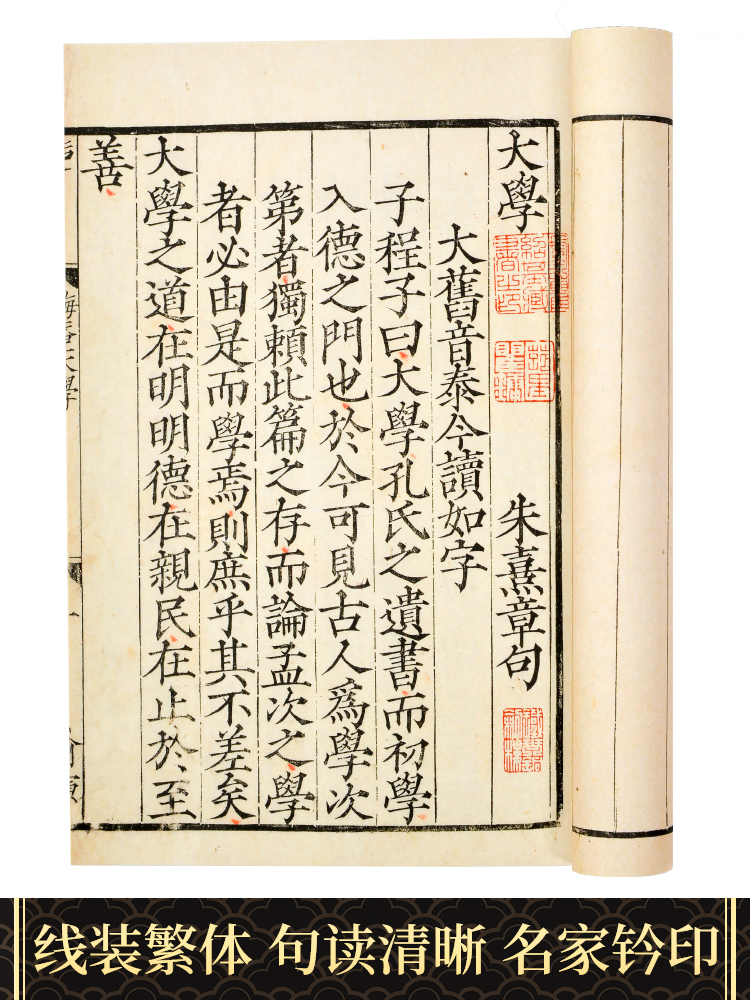 大學
朱熹章句
大舊音泰今讀如字
子程子曰大學孔氏之遺書而初學
入德之門也於今可見古人為學次
第者獨賴此篇之存而論孟次之學
者必由是而學焉則庶乎其不差矣
大學之道在明明德在親民在止於至
善
线装繁体 句读清晰 名家钤印